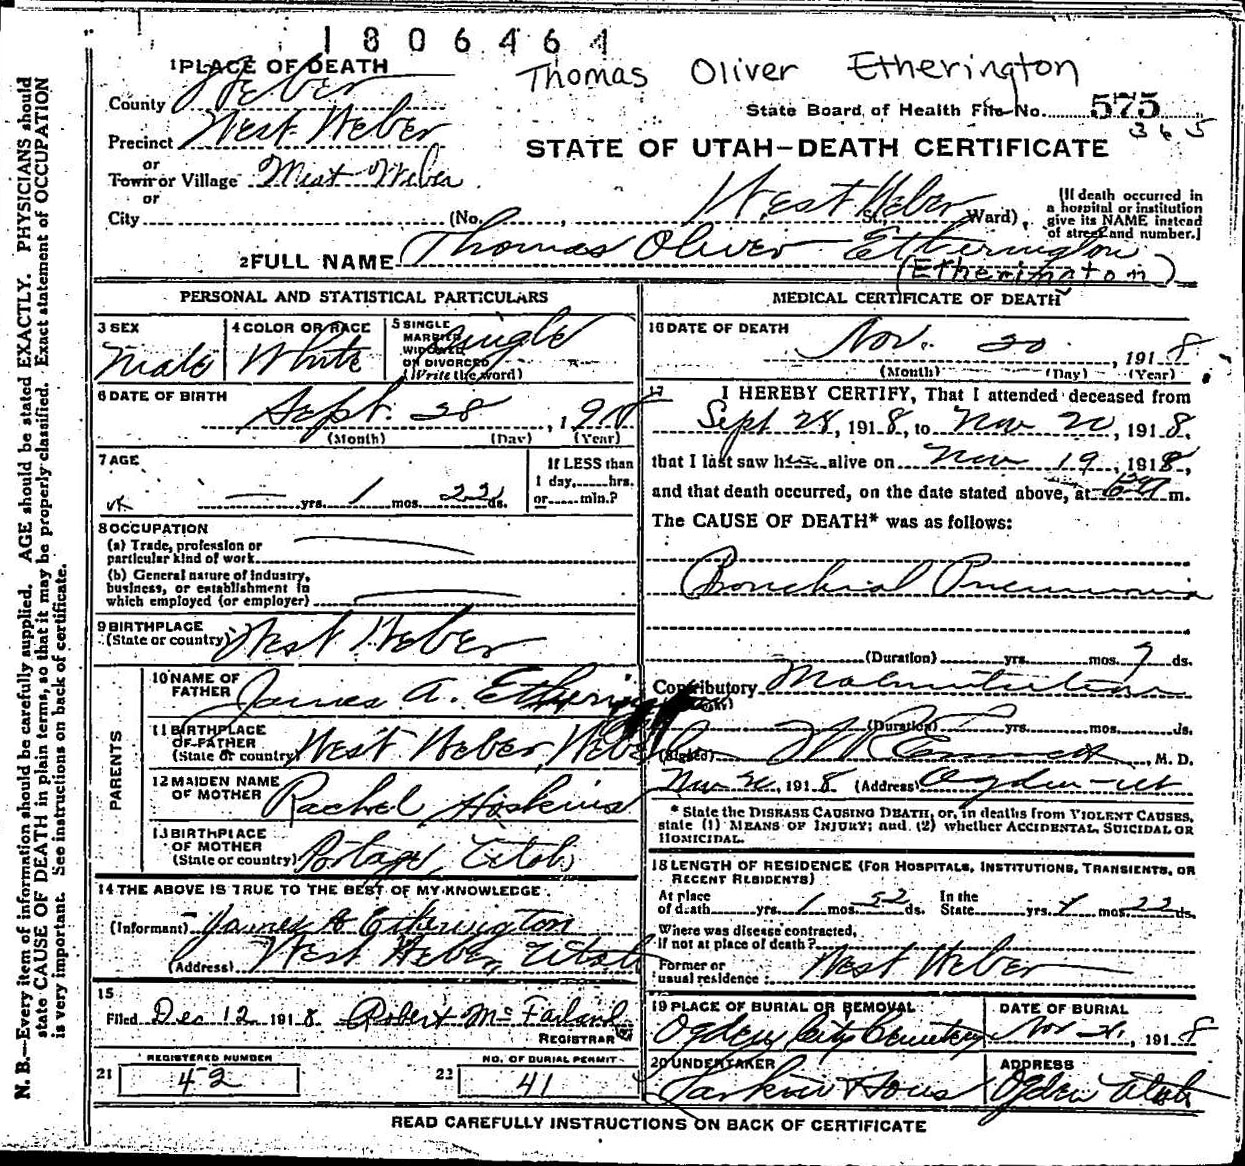 1806464
Thomas Oliver Etherington
1 PLACE OF DEATH
County Weber
State Board of Health File No. 575
365
Precinct West Weber
STATE OF UTAH—DEATH CERTIFICATE
or
Town or Village West Weber
or
City (No. , West Weber St. Ward)
[If death occurred in
a hospital or institution
give its NAME instead
of street and number.]
2 FULL NAME Thomas Oliver Etherington
(Etherington)
PERSONAL AND STATISTICAL PARTICULARS
3 SEX
Male
4 COLOR OR RACE
White
5 SINGLE
MARRIED
WIDOWED
OR DIVORCED
(Write the word)
Single
6 DATE OF BIRTH
Sept. 28, 1918
(Month) (Day) (Year)
7 AGE
yrs. 1 mos. 22 ds.
If LESS than
1 day, hrs.
or min.?
8 OCCUPATION
(a) Trade, profession or
particular kind of work
(b) General nature of industry,
business, or establishment in
which employed (or employer)
9 BIRTHPLACE
(State or country) West Weber
PARENTS
10 NAME OF
FATHER James A. Etherington
11 BIRTHPLACE
OF FATHER
(State or country) West Weber, Weber
12 MAIDEN NAME
OF MOTHER Rachel Hoskins
13 BIRTHPLACE
OF MOTHER
(State or country) Portage, Utah
14 THE ABOVE IS TRUE TO THE BEST OF MY KNOWLEDGE
(Informant) James A Etherington
(Address) West Weber, Utah
15
Filed Dec 12 1918 Robert McFarland
REGISTRAR
REGISTERED NUMBER
21 42
NO. OF BURIAL PERMIT
22 41
MEDICAL CERTIFICATE OF DEATH
16 DATE OF DEATH
Nov. 20, 1918
(Month) (Day) (Year)
17 I HEREBY CERTIFY, That I attended deceased from
Sept 28, 1918, to Nov 20, 1918,
that I last saw h alive on Nov 19, 1918,
and that death occurred, on the date stated above, at m.
The CAUSE OF DEATH* was as follows:
Bronchial Pneumonia
(Duration) yrs. mos. 7 ds.
Contributory Malnutrition
(Duration) yrs. mos. ds.
(Signed) , M. D.
Nov 20, 1918 (Address) Ogden Ut
* State the DISEASE CAUSING DEATH, or, in deaths from VIOLENT CAUSES,
state (1) MEANS OF INJURY; and (2) whether ACCIDENTAL, SUICIDAL OR
HOMICIDAL.
18 LENGTH OF RESIDENCE (FOR HOSPITALS, INSTITUTIONS, TRANSIENTS, OR
RECENT RESIDENTS)
At place
of death yrs. 1 mos. 22 ds. In the
State yrs. 1 mos. 22 ds.
Where was disease contracted,
if not at place of death?
Former or
usual residence: West Weber
19 PLACE OF BURIAL OR REMOVAL
Ogden City Cemetery
DATE OF BURIAL
Nov 21, 1918
20 UNDERTAKER
Larkin & Sons
ADDRESS
Ogden Utah
READ CAREFULLY INSTRUCTIONS ON BACK OF CERTIFICATE
N. B.—Every item of information should be carefully supplied. AGE should be stated EXACTLY. PHYSICIANS should
state CAUSE OF DEATH in plain terms, so that it may be properly classified. Exact statement of OCCUPATION
is very important. See instructions on back of certificate.